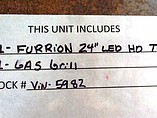 THIS UNIT INCLUDES
1- FURRION 24" LED HD T
1- GAS Grill
OCK # VIN- 5982